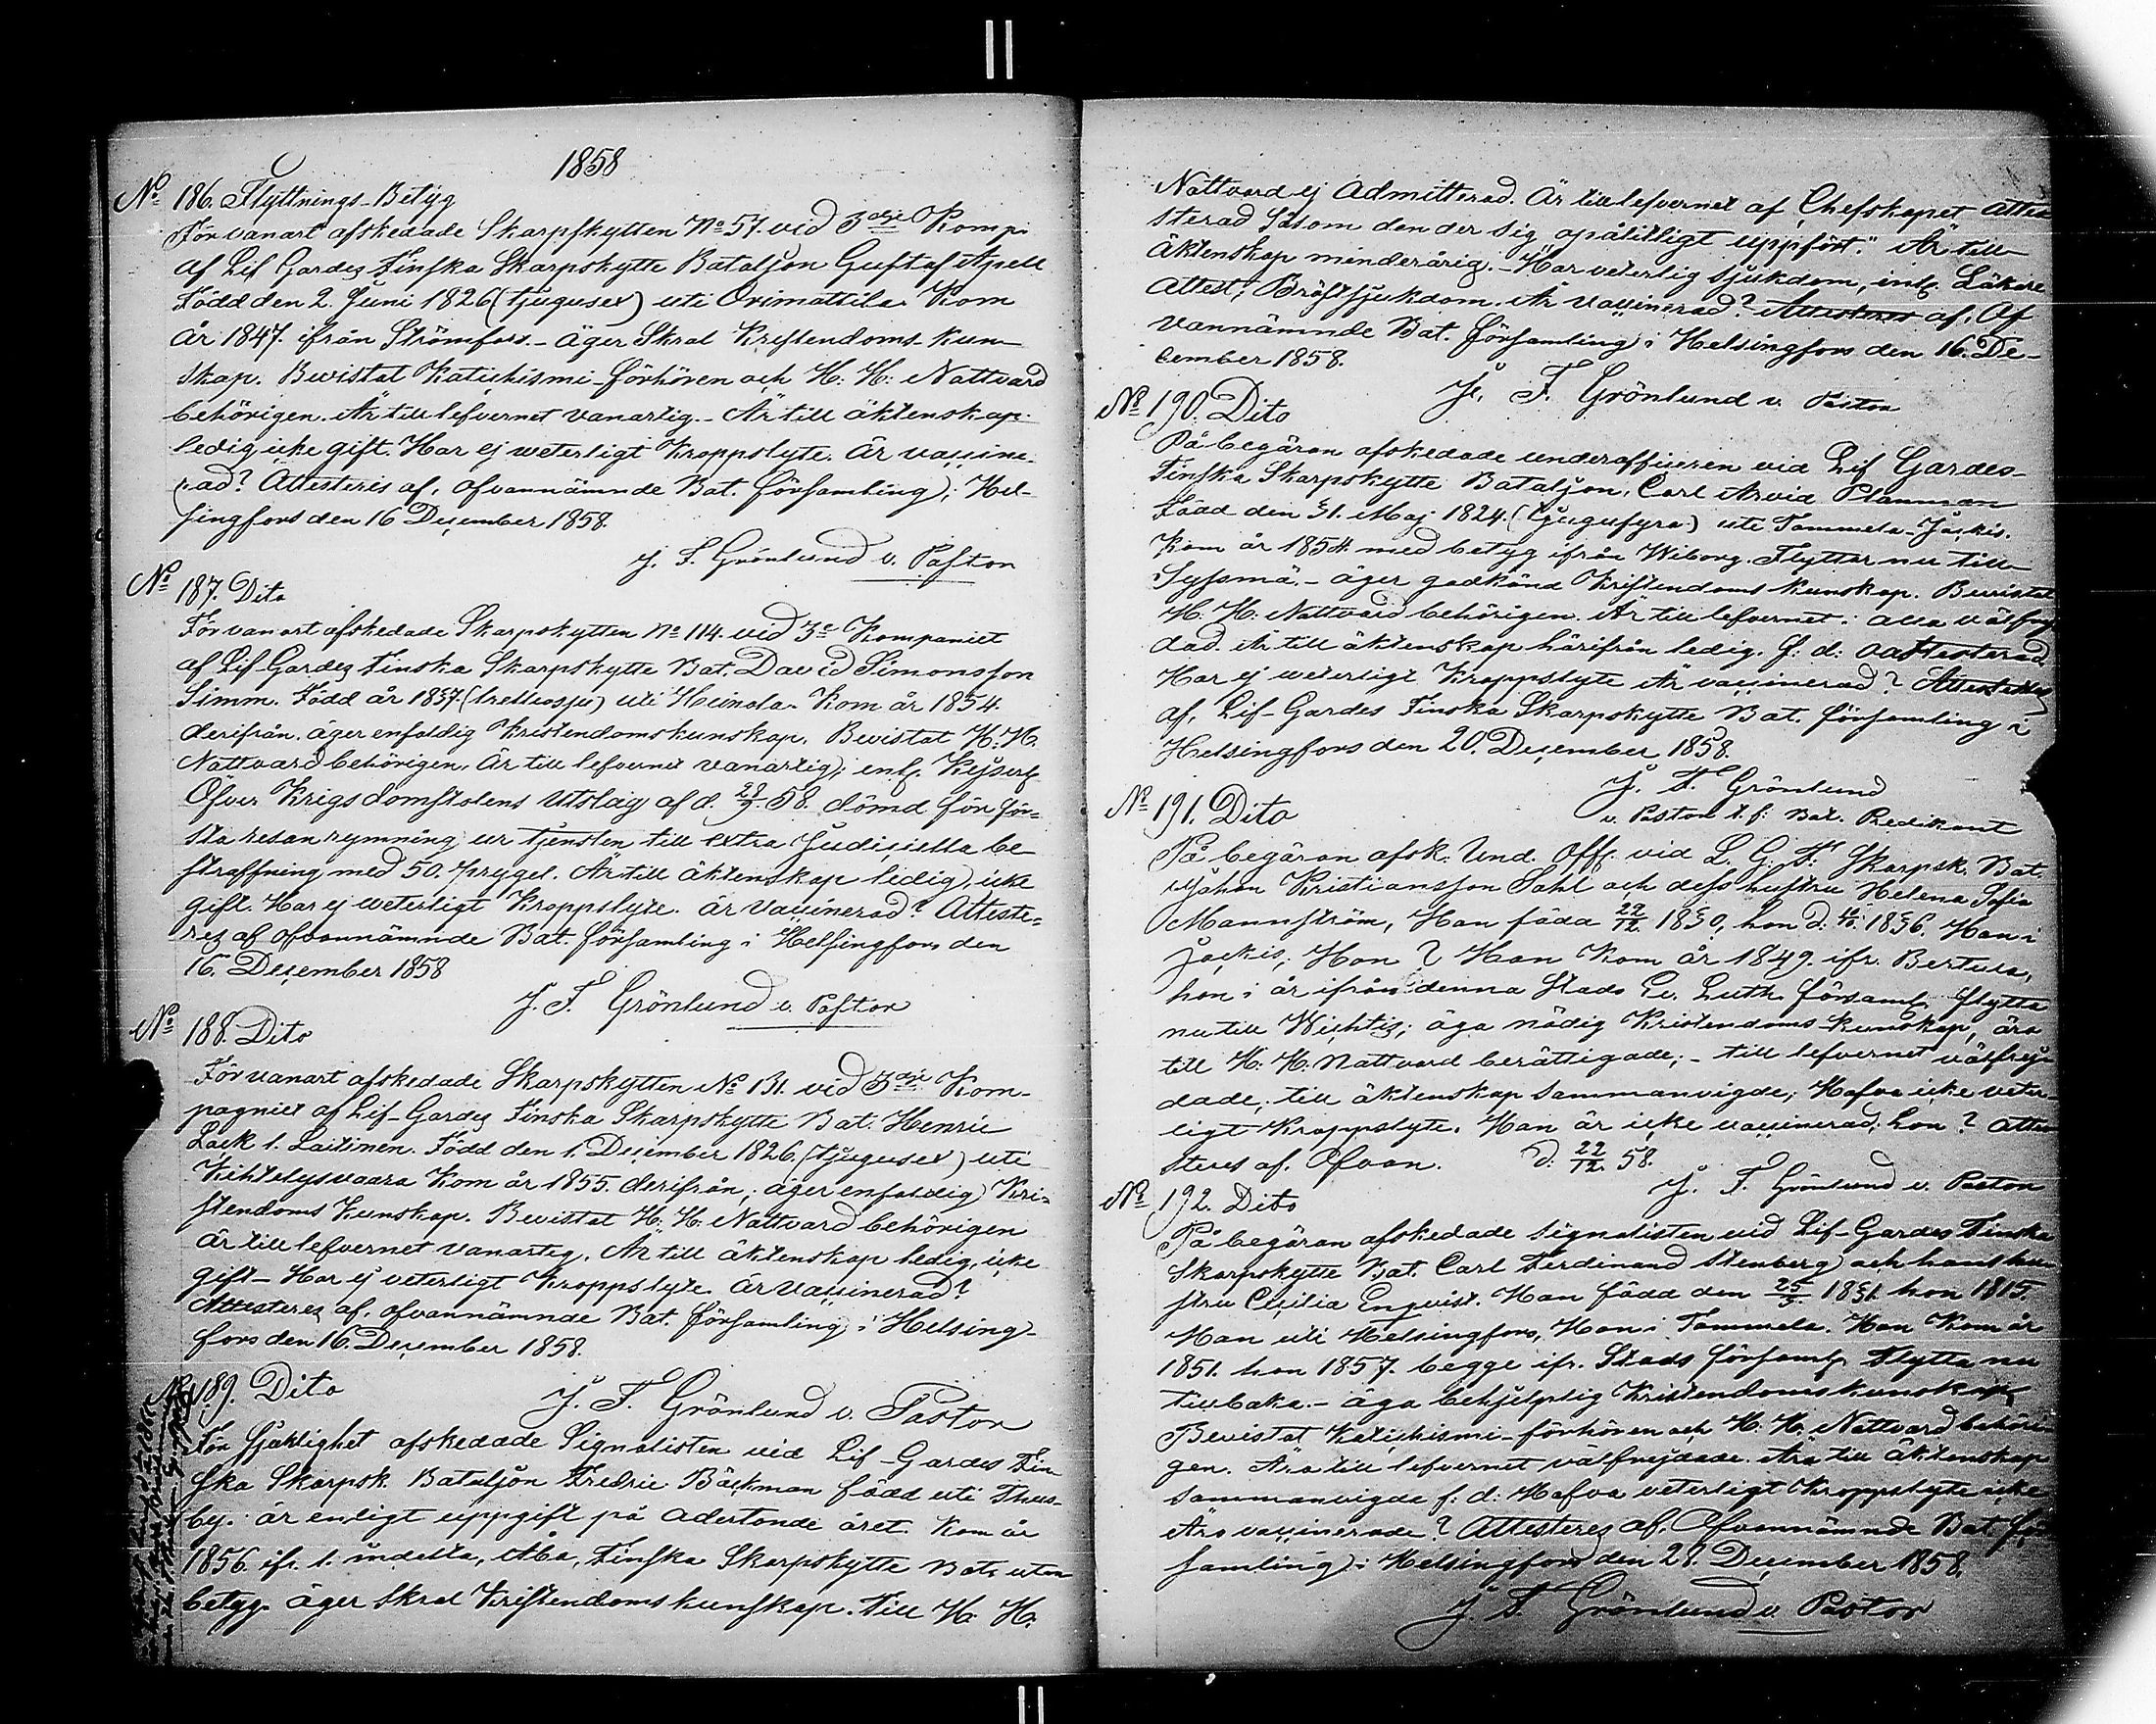 1858
No 186. Flyttnings-Betyg
För vanart afskedade Skarpskytten No 57. vid 3dje Komp.
af Lif Gardes Finska Skarpskytte Bataljon Gustaf Apell
Född den 2. Juni 1826 (tjugusex) uti Orimattila Kom
år 1847. ifrån Strömfors. - äger Skral Kristendoms kun-
skap. Bevistat Katichismi-förhören och H: H: Nattvard
behörigen. Är till lefvernet vanartig. - Är till äktenskap
ledig icke gift. Har ej weterligt Kroppslyte. Är vaccine-
rad? Attesteris af, ofvannämnde Bat. församling, i Hel-
singfors den 16 December 1858.
J. F. Grönlund v. Pastor
No 187. Dito
För vanart afskedade Skarpskytten No 114. vid 3e Kompaniet
af Lif Gardes Finska Skarpskytte Bat. David Simonsson
Simm. Född år 1837. (trettiosju) uti Heinola. Kom år 1854.
derifrån. äger enfaldig Kristendomskunskap. Bevistat H: H:
Nattvard behörigen. Är till lefvernet vanartig; enl. Kejserl.
Öfver Krigsdomstolens Utslag af d. 58. dömd för för-
sta resan rymning ur tjensten till extra Judiciella be-
straffning med 50. prygel. Är till äktenskap ledig, icke
gift. Har ej weterligt Kroppslyte. är vaccinerad? Atteste-
res af ofvannämnde Bat. församling i Helsingfors den
16. December 1858
J. F. Grönlund v. Pastor
No 188. Dito
För vanart afskedade Skarpskytten No 131. vid 3dje Kom-
pagniet af Lif-Gardes Finska Skarpskytte Bat. Henric
Lack l. Laitinen. Född den 1. December 1826. (tjugusex) uti
Kihtelysvaara Kom år 1855. derifrån; äger enfaldig Kri-
stendoms Kunskap. Bevistat H: H: Nattvard behörigen
är till lefvernet vanartig. Är till äktenskap ledig, icke
gift - Har ej veterligt Kroppslyte. är vaccinerad?
Attesteres af, ofvannämnde Bat. församling i Helsing-
fors den 16. December 1858.
J. F. Grönlund v. Pastor
No 189. Dito
För sjuklighet afskedade Signalisten vid Lif-Gardes Fin-
ska Skarpsk. Bataljon Fredric Bäckman född uti Thus-
by. är enligt uppgift på adertonde året. Kom år
1856. ifr. 1. indelta, Åbo, Finska Skarpskytte Bat. utan
betyg. äger skral Kristendomskunskap. Till H. H.
Nattvard ej Admitterad. Är till lefvernet af Chefskapet atte-
sterad Såsom den der sig opålitligt uppfört." Är till
Äktenskap minderårig. - Har veterlig sjukdom, enl. Läkare
attest; Bröstsjukdom. Är vaccinerad? Attesteres af, Of
vannämnde Bat. församling i Helsingfors den 16. De-
cember 1858.
J. F. Grönlund v. Pastor
No 190. Dito
På begäran afskedade underofficeren vid Lif Gardes
Finska Skarpskytte Bataljon, Carl Arvid Planman
Född den 31. Maj 1824. (tjugufyra) uti Tammela-Jockis.
Kom år 1854. med betyg ifrån Wiborg. Flyttar nu till
Sysmä. - äger godkänd Kristendoms kunskap. Bevistat
H. H: Nattvard behörigen. Är till lefvernet: alla välfrej
dad. Är till äktenskap härifrån ledig. f: d: oattesterad.
Har ej weterligt Kroppslyte Är vaccinerad? Attesteres
af, Lif-Gardes Finska Skarpskytte Bat. församling i
Helsingfors den 20. December 1858.
J. F. Grönlund
v. Pastor t. f: Bat. Predikant
No 191. Dito
På begäran afsk. Und. Off. vid L. G. F. Skarpsk. Bat.
Johan Kristiansson Sahl och dess hustru Helena Sofia
Mannström, Han född 22/12 1830, hon d: 1836. Han i
Jockis; Hon? Han Kom år 1849. ifr. Bertula,
hon i år ifrån denna Stads Ev. Luth. församl. flytta
nu till Wichtis; äga nödig Kristendoms-kunskap, äro
till H: H. Nattvard berättigade; - till lefvernet välfrej-
dade; till äktenskap sammanvigde; Hafva icke veter-
ligt Kroppslyte. Han är icke vaccinerad, hon? atte-
steres af. Ofvan. d: 22/12. 58.
J. F. Grönlund v. Pastor
No 192. Dito
På begäran afskedade signalisten vid Lif-Gardes Finska
Skarpskytte Bat. Carl Ferdinand Stenberg och hans hu-
stru Cecilia Enqvist. Han född den 25/3. 1831. hon 1815.
Han uti Helsingfors, Hon i Tammela. Han Kom år
1851. hon 1857. begge ifr. Stads församl. Flytta nu
tillbaka. - äga behjelplig Kristendomskunskap,
Bevistat Katichismi-förhören och H: H: Nattvard behöri-
gen. Äro till lefvernet välfrejdade. Äro till äktenskap
sammanvigda f: d: Hafva veterligt Kroppslyte icke
Äro vaccinerade? Attesteres af. Ofvannämnde Bat. för
samling i Helsingfors den 28. December 1858.
J. F. Grönlund v. Pastor